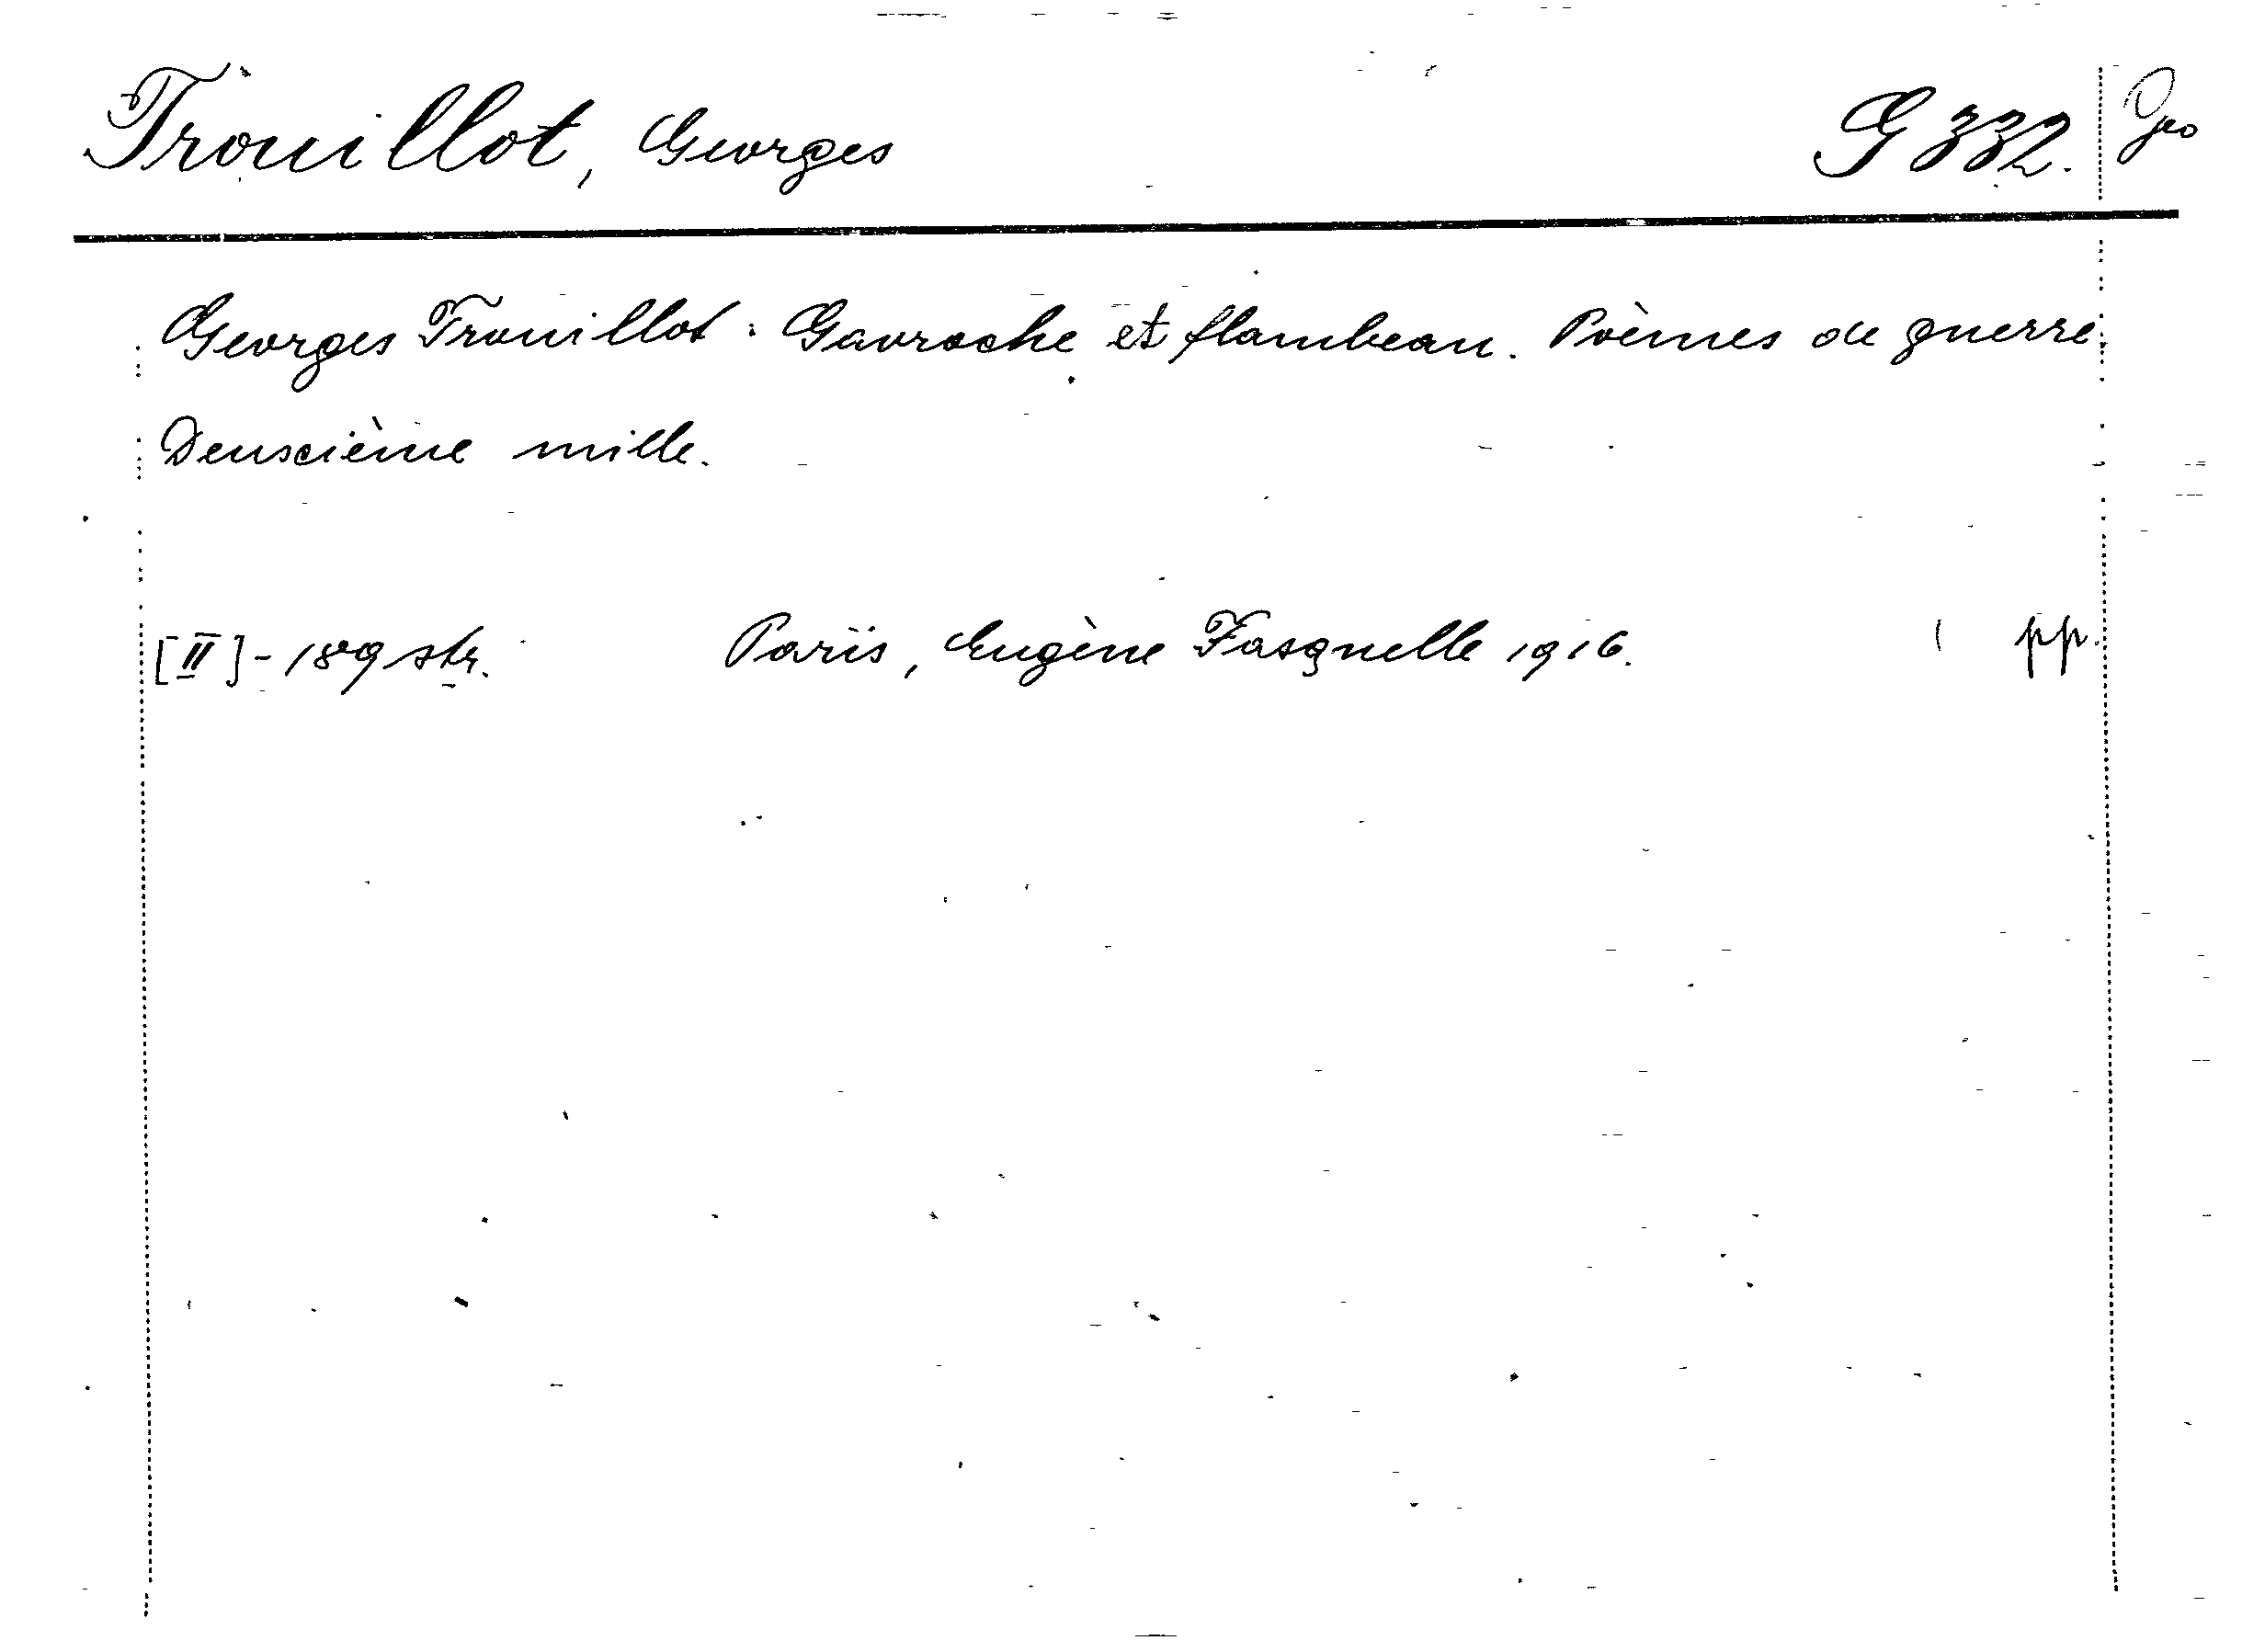 Trouillot, Georges G 332. Geo
Georges Trouillot: Gavroche et flambeau. Poèmes de guerre.
Deuxième mille.
[II] - 189 str. Paris, Eugène Fasquelle 1916. pp.